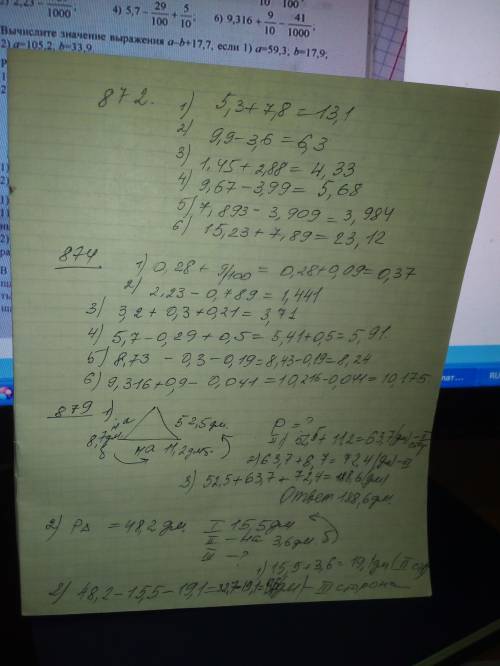 2) 2,23 − /1000;
4) 5,7 − 29/100 + 5/10;
6) 9,316 + 9/10 − 41/1000;
Вычислите значение выражения a–b+17,7, если 1) a=59,3; b=17,9;
2) a=105,2; b=33,9
872. 1) 5,3+7,8=13,1
2) 9,9−3,6=6,3
3) 1,45+2,88=4,33
4) 9,67−3,99=5,68
5) 7,893−3,909=3,984
6) 15,23+7,89=23,12
874 1) 0,28+9/100=0,28+0,09=0,37
2) 2,23−0,789=1,441
3) 3,2+0,3+0,21=3,71
4) 5,7−0,29+0,5=5,41+0,5=5,91
5) 8,73−0,3−0,19=8,43−0,19=8,24
6) 9,316+0,9−0,041=10,216−0,041=10,175
879 1) на 52,5дм. P=?
8,7дм на 11,2дм б. +11,2=63,7(дм)−
2) 63,7+8,7=72,4(дм)−
3) 52,5+63,7+72,4=188,6(дм)
Ответ 188,6дм.
2) PΔ=48,2дм. I 15,5дм
II − на 3,6дм б)
III − ?
1) 15,5+3,6=19,1дм(II
2) 48,2−15,5−19,1=32,7−19,1= (дм)−III сторона